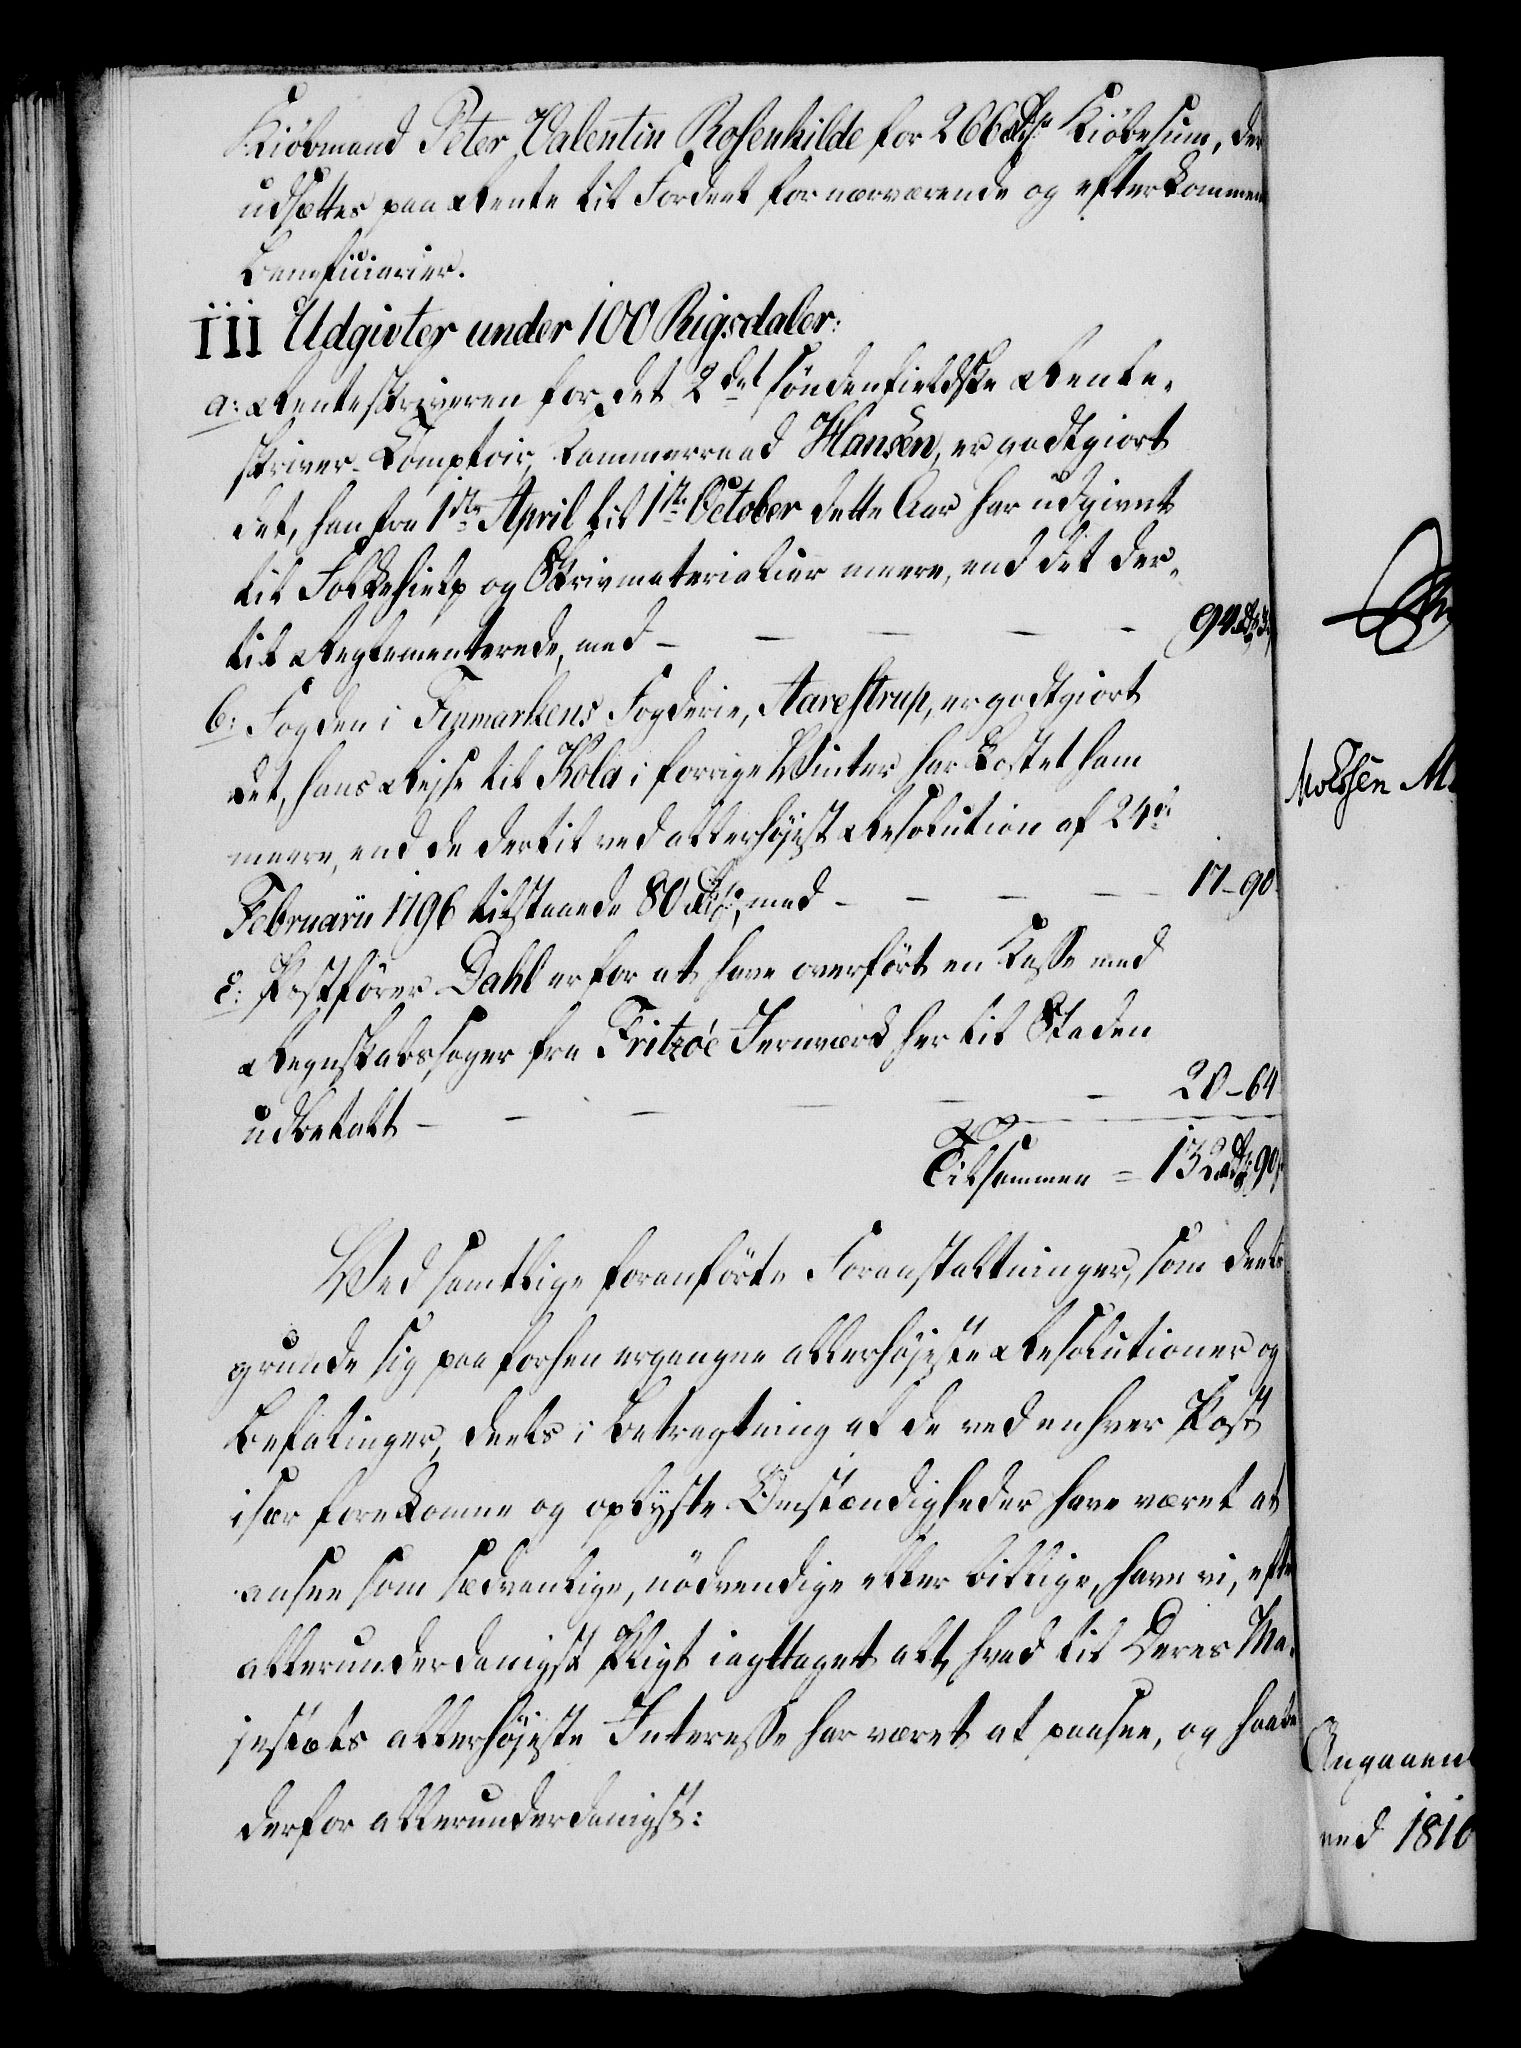 Kiöbmand Peter Valentin Rosenkilde for 266 Rdlr Kiöbesum, der
udsættes paa Rente til Fordeel for nærværende og efterkommen
Beneficiarier.
III Udgivter under 100 Rigsdaler:
a: Renteskriveren for det 2det söndenfieldske Rente-
skriver-Comptoir, Kammerraad Hansen, er godtgiort
det, han fra 1ste April til 1ste October dette Aar har udgivet
til Folkehielp og Skrivmaterialier meere, end det der-
til Reglementerede, med - - - - - 94 Rd 3
b: Fogden i Finmarkens Fogderie, Aarestrup, er godtgiort
det, hans Rejse til Kola i forrige Winter har kostet ham
meere, end de dertil ved allerhöjest Resolution af 24de
Februarii 1796 tilstaaede 80 Rd, med - - - - 17-90
c: Postförer Dahl er for at have overfört en Kasse med
Regnskabssager fra Fritzöe Jernværk her til Staden
udbetalt - - - - - - 20-64
Tilsammen = 132 Rd 90
Ved samtlige foranförte Foranstaltninger, som deels
grunde sig paa forhen ergangne allerhöjeste Resolutioner og
Befalinger, deels i Betragtning af de ved enhver Post
især forekomne og oplyste Omstændigheder have været at
ansee som sædvanlige, nödvendige eller billige, have vi, efter
allerunderdanigst Pligt iagttaget alt, hvad til Deres Ma-
jestæts allerhöjeste Interesse har været at paasee, og haabe
derfor allerunderdanigst:
Angaaen
ved 1810